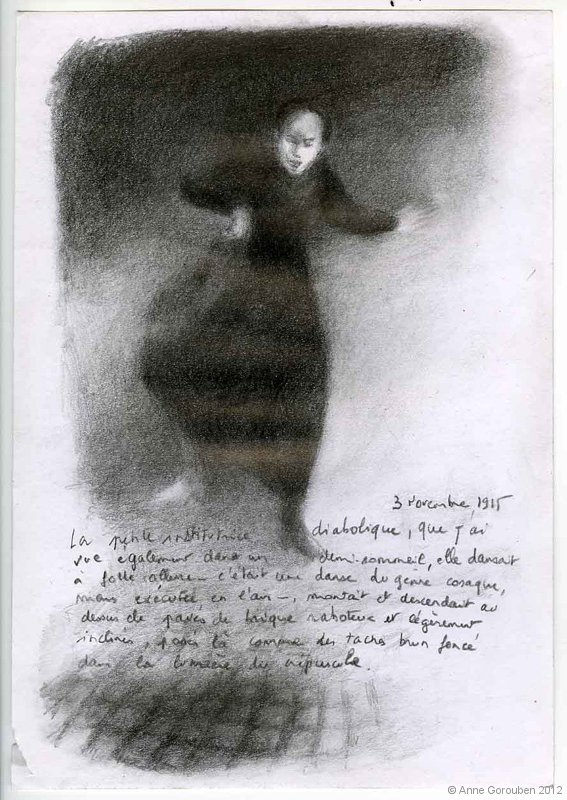 3 Novembre, 1915
La petite institutrice diabolique, que j'ai
vue également dans un demi-sommeil, elle dansait
à folle allure – c'était une danse du genre cosaque,
mais exécutée en l'air –, montait et descendait au
dessus de pavés de brique raboteux et légèrement
inclinés, posés là comme des taches brun foncé
dans la lumière du crépuscule.
© Anne Gorouben 2012